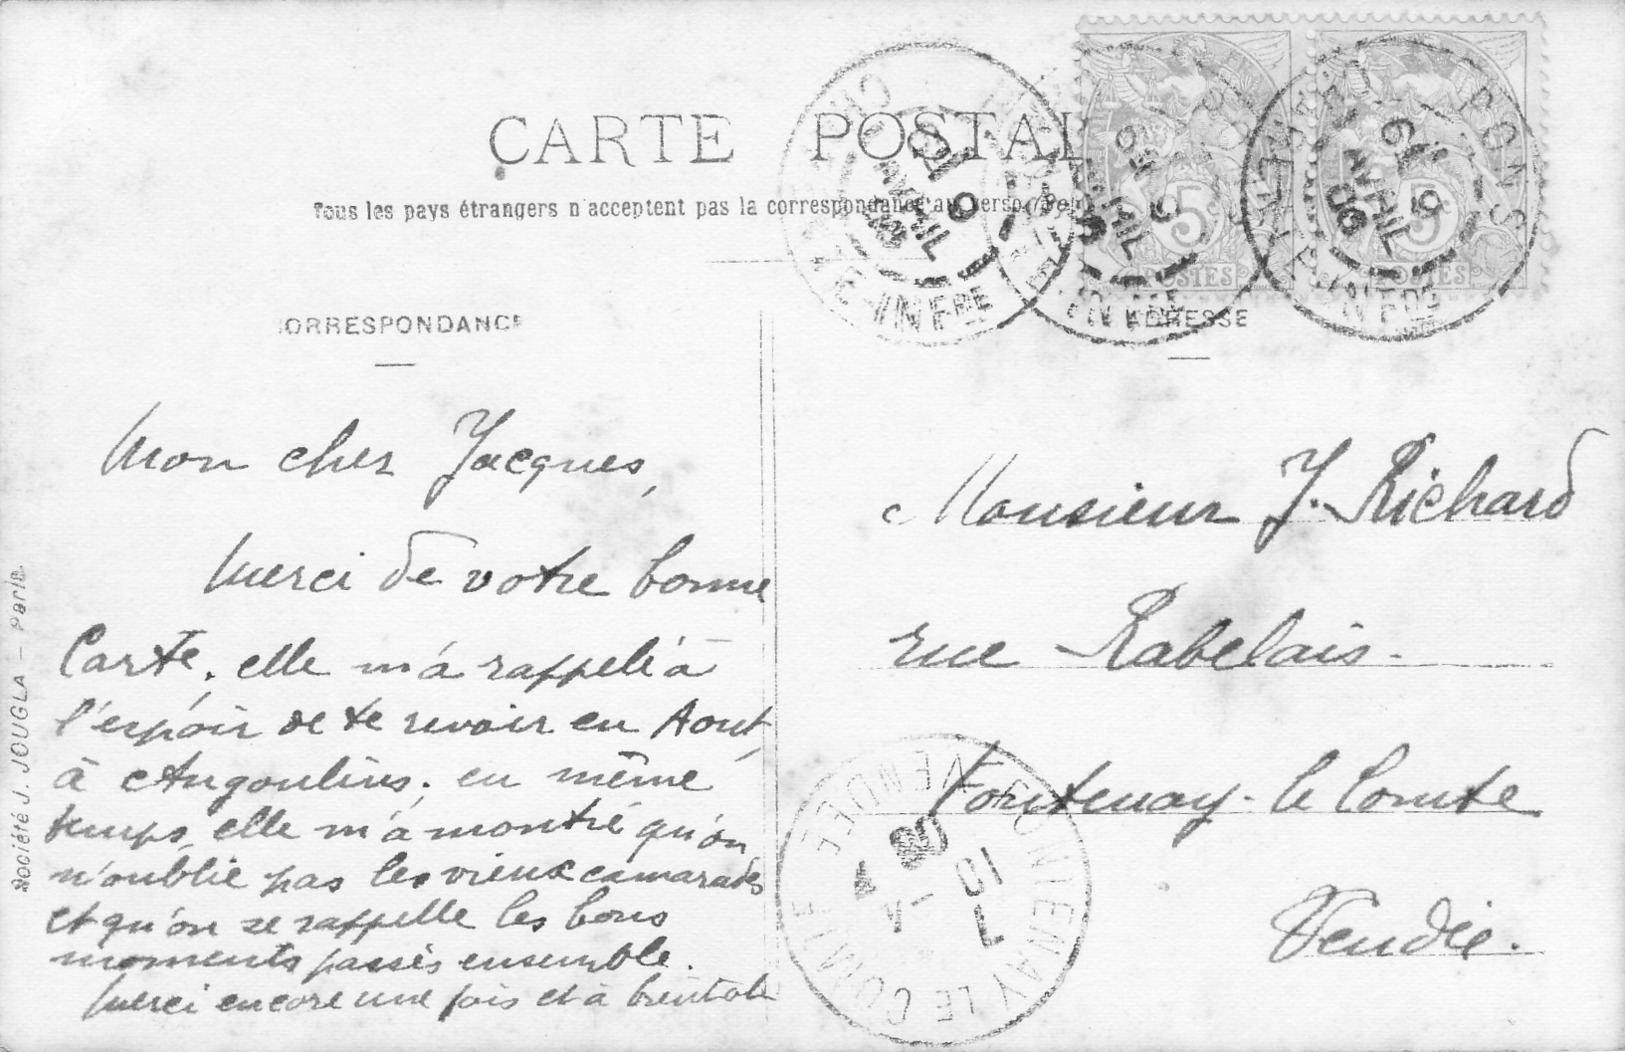 CARTE POSTAL
Tous les pays étrangers n'acceptent pas la correspondance au verso
CORRESPONDANCE
ADRESSE
Mon cher Jacques,
Merci de votre bonne
Carte. elle m'a rappelé à
l'espoir de te revoir en Aout,
à Angoulins. en même
temps, elle m'a montré qu'on
n'oublie pas les vieux camarades
et qu'on se rappelle les bons
moments passés ensemble.
Merci encore une fois et à bientôt
Monsieur J. Richard
rue Rabelais.
Fontenay-le Comte
Vendée.
Société J. JOUGLA - Paris
5
POSTES
5
POSTES
PONS
AVRIL
06
INFRE
FONTENAY LE COMTE
VENDÉE